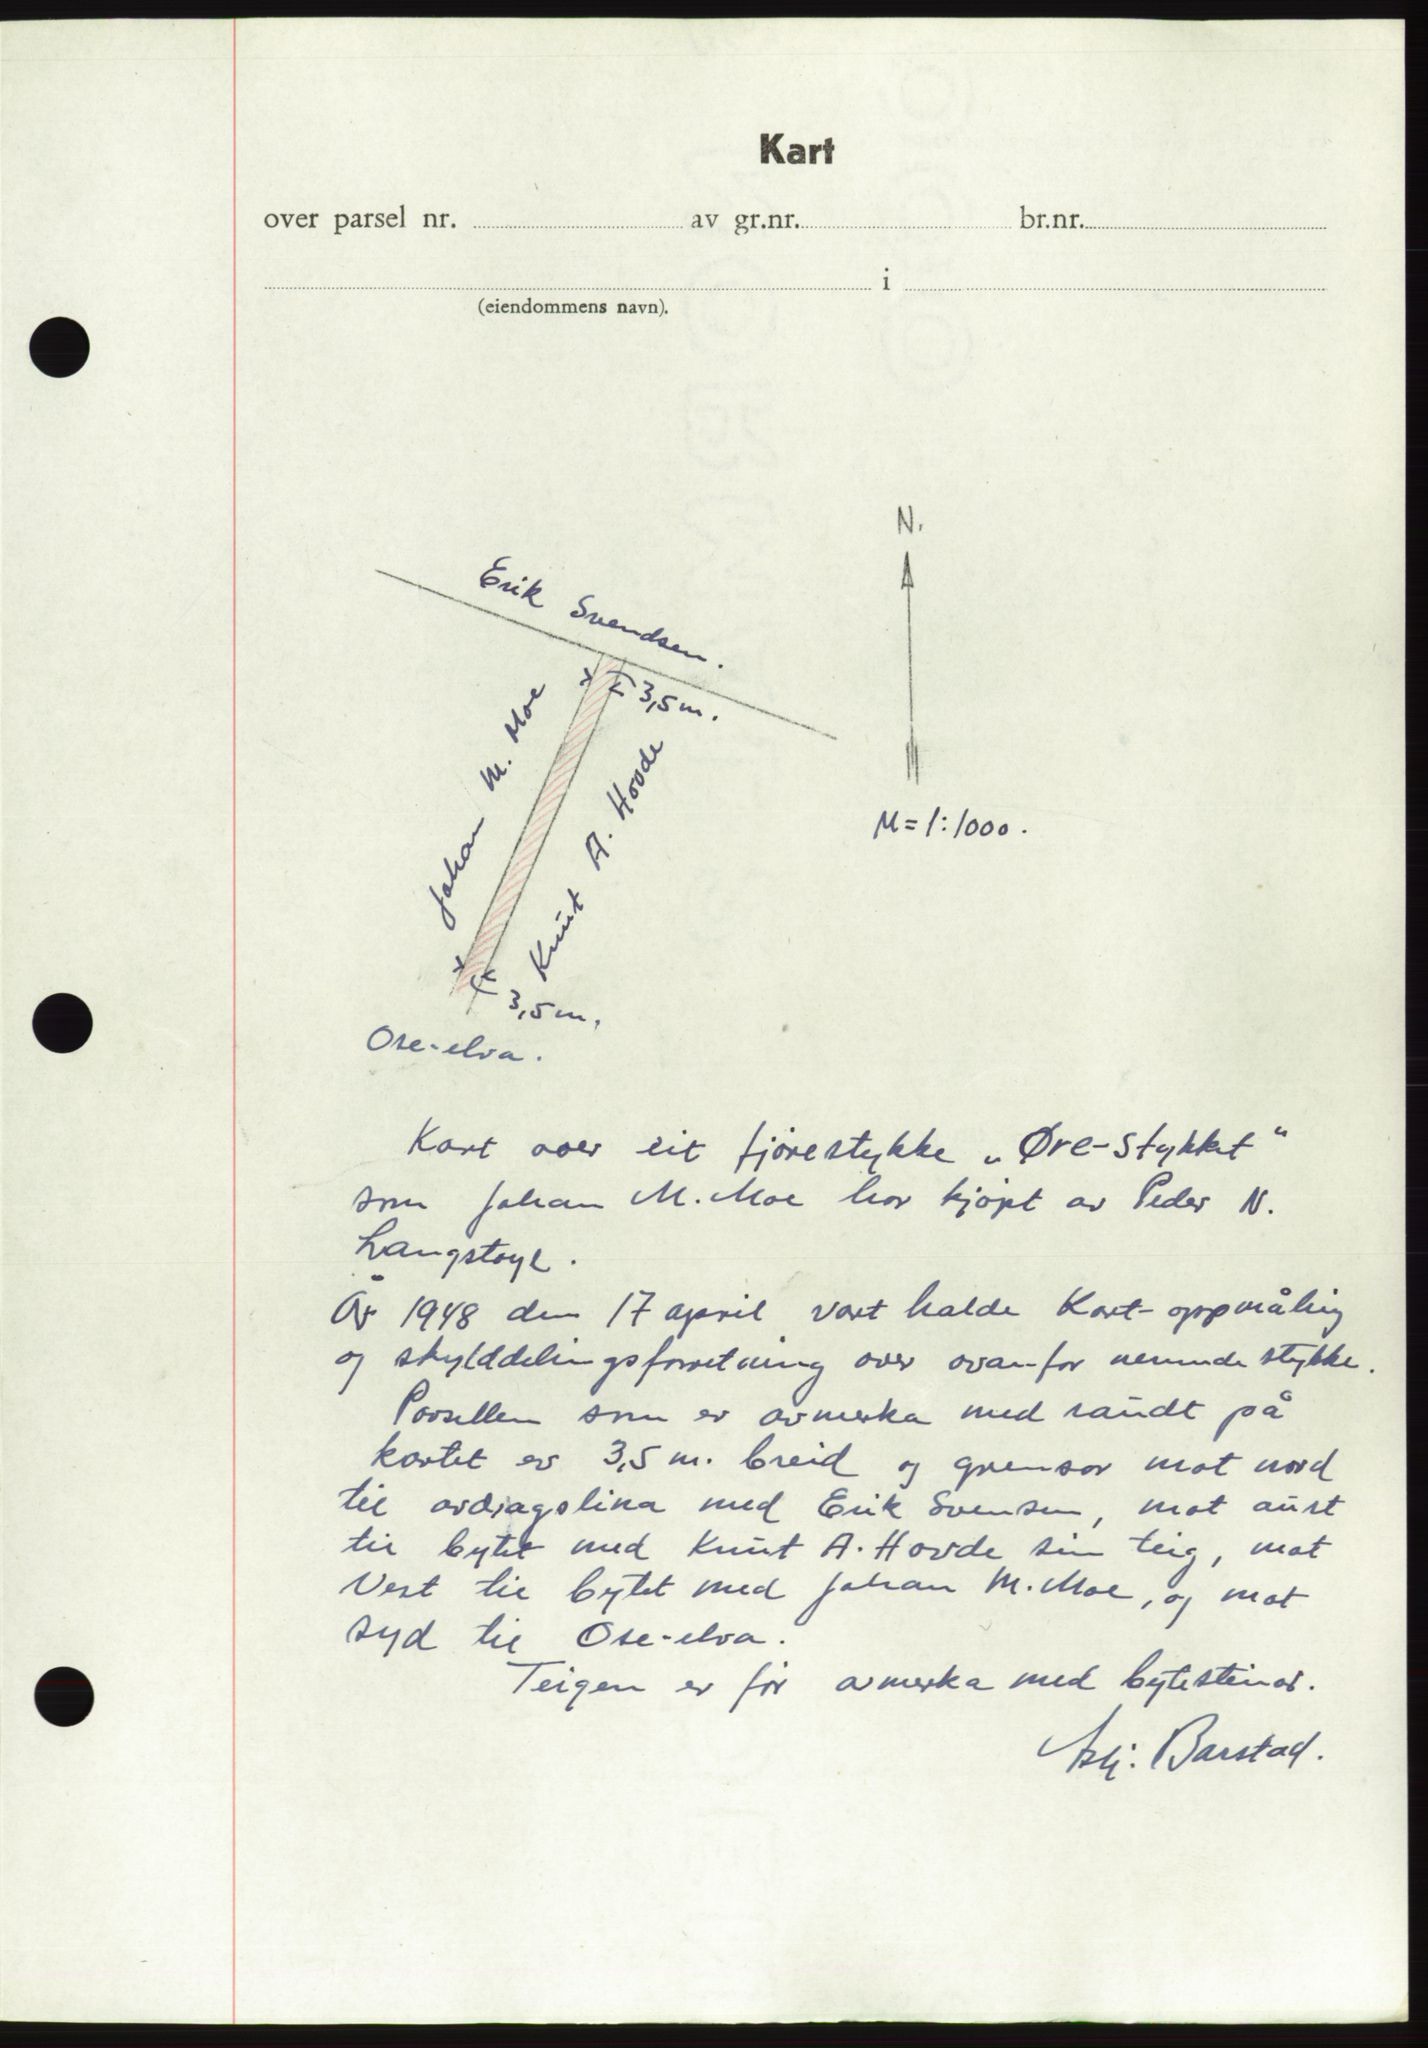 Kart
over parsel nr. av gr.nr. br.nr.
i
(eiendommens navn).
N.
Erik Svendsen.
3,5 m.
Johan M. Moe
Knut A. Hovde
M = 1:1000.
3,5 m.
Ose-elva.
Kart over eit fjørestykke „Øre-stykket“
som Johan M. Moe har kjøpt av Peder N.
Langstøyl.
År 1948 den 17 april vart halde Kart-oppmåling
og skylddelingsforretning over ovanfor nemnde stykke.
Parsellen som er avmerka med raudt på
kartet er 3,5 m. breid og grensar mot nord
til avdragslina med Erik Svensen, mot aust
til bytet med Knut A. Hovde sin teig, mot
Vest til bytet med Johan M. Moe, og mot
syd til Ose-elva.
Teigen er før avmerka med bytesteinar.
Barstad.